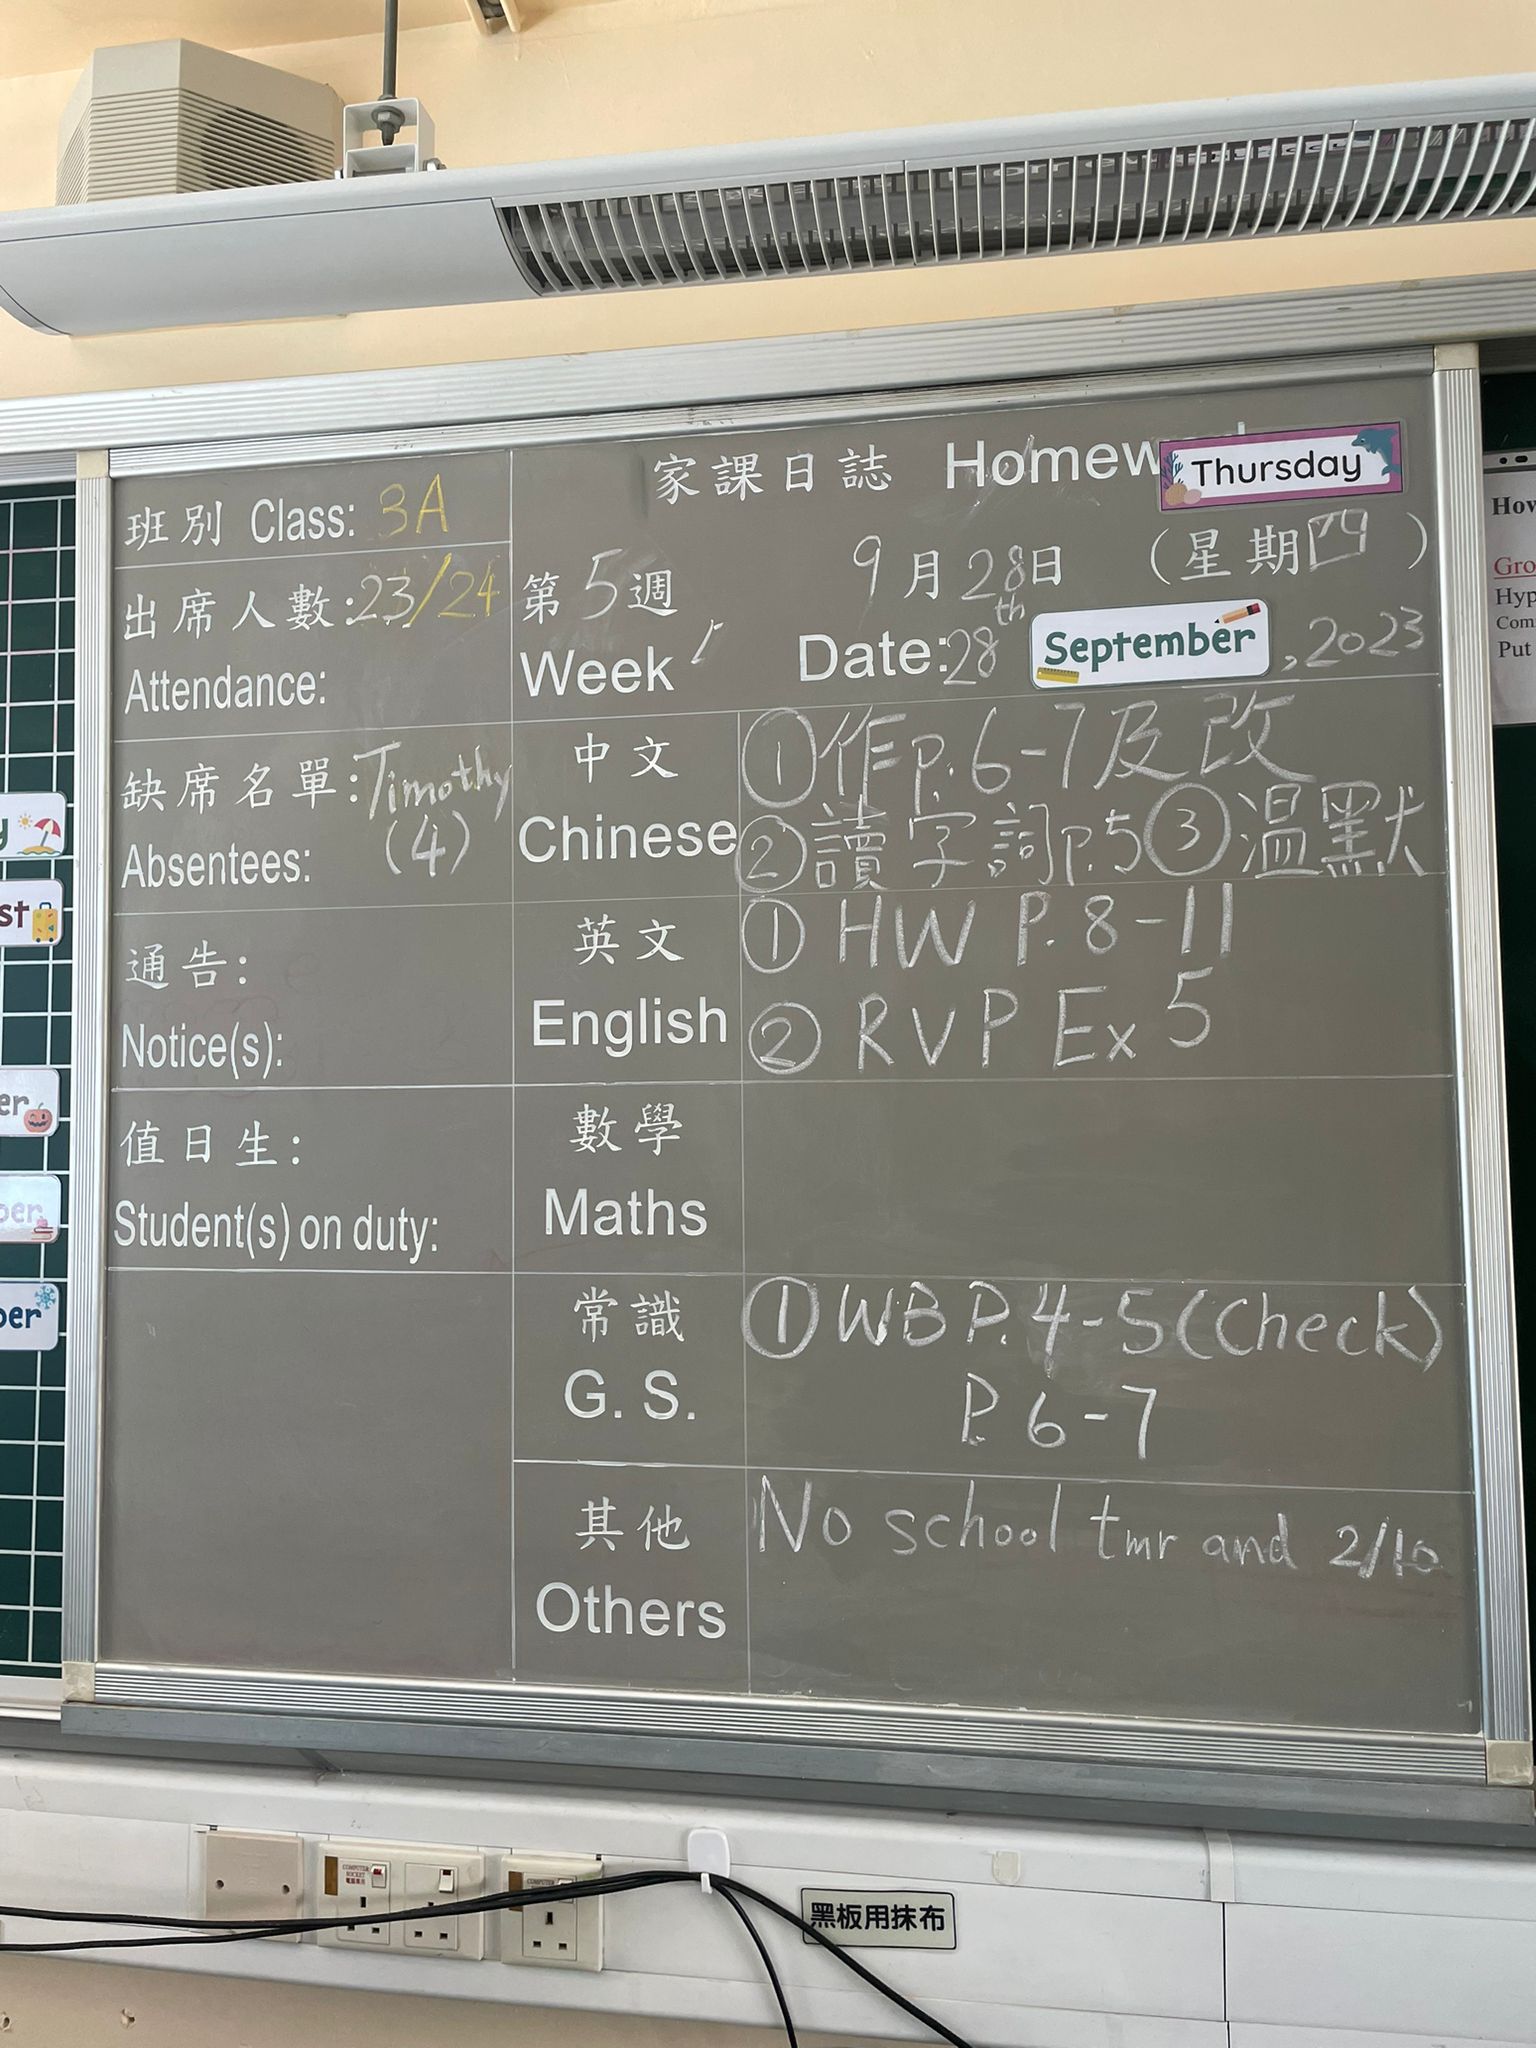 家課日誌 Homew
Thursday
班別 Class: 3A
出席人數: 23/24
Attendance:
缺席名單: Timothy
Absentees: (4)
通告:
Notice(s):
值日生:
Student(s) on duty:
第5週
Week
9月28日 (星期四)
Date: 28th September, 2023
中文
Chinese
①作P.6-7及改
②讀字詞P.5③溫默
英文
English
① HW P.8-11
② RVP Ex 5
數學
Maths
常識
G. S.
①WB P.4-5(Check)
P.6-7
其他
Others
No school tmr and 2/10
st
er
ber
ber
How
Gro
Hyp
Com
Put
COMPUTER
SOCKET
COMPUTER
黑板用抹布